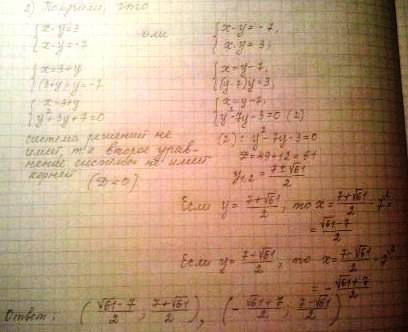 2) Получаем, что
{ x-y=3
{ x·y=-7
или
{ x-y=-7,
{ x·y=3;
{ x=3+y
{ (3+y)·y=-7
{ x=y-7,
{ (y-7)y=3;
{ x=3+y
{ y²+3y+7=0
{ x=y-7,
{ y²-7y-3=0 (2)
система решений не
имеет, т.к. второе урав-
нение системы не имеет
корней
(D<0)
(2): y²-7y-3=0
D=49+12=61
y₁,₂ = (7±√61)/2
Если y = (7+√61)/2, то x = (7+√61)/2 - 7 =
= (√61-7)/2
Если y = (7-√61)/2, то x = (7-√61)/2 - 7 =
= - (√61+7)/2
Ответ: ((√61-7)/2; (7+√61)/2), (-(√61+7)/2; (7-√61)/2)